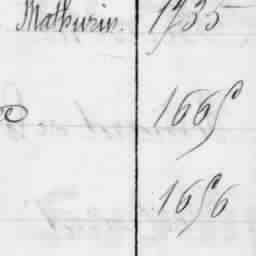 Mathurin. 1735
1665
1656